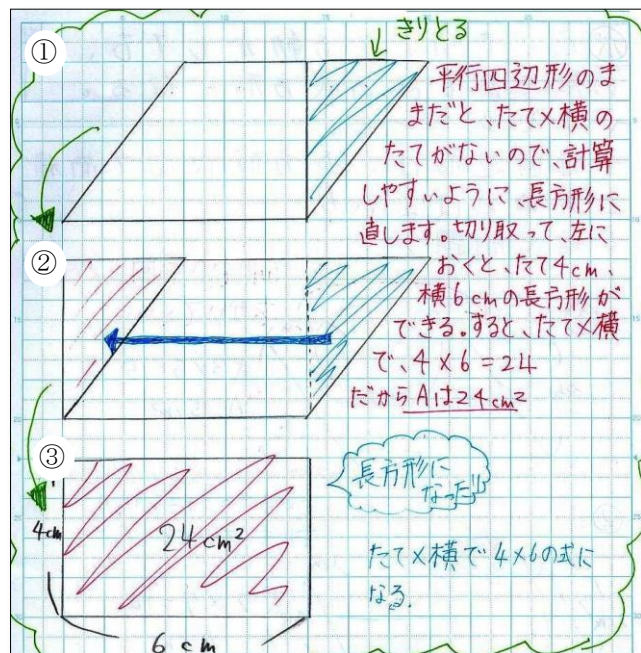 ①
きりとる
平行四辺形のま
まだと、たて×横の
たてがないので、計算
しやすいように、長方形に
直します。切り取って、左に
おくと、たて4cm、
横6cmの長方形が
できる。すると、たて×横
で、4×6=24
だからAは24cm²
②
③
長方形に
なった!!
4cm
24cm²
6cm
たて×横で4×6の式に
なる。